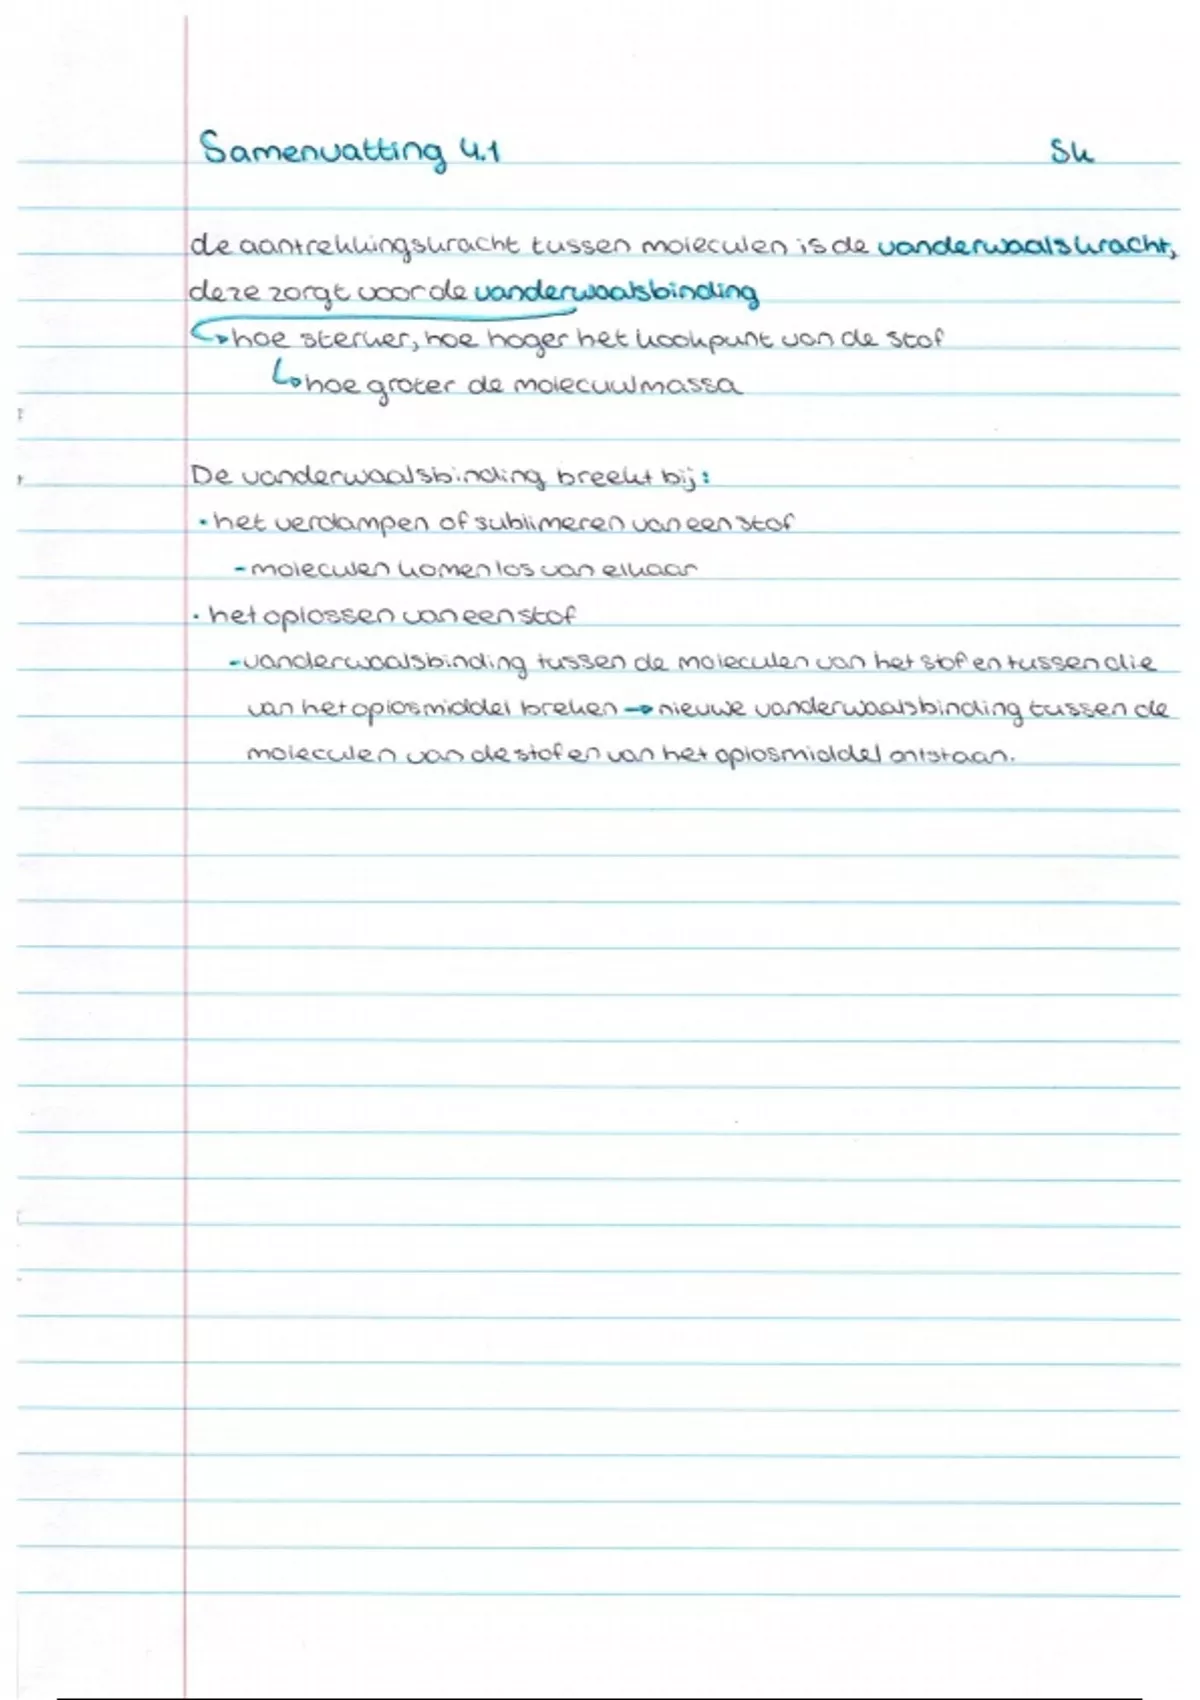 Samenvatting 4.1 Sk
de aantrekkingskracht tussen moleculen is de vanderwaalskracht,
deze zorgt voor de vanderwaalsbinding
↳hoe sterker, hoe hoger het kookpunt van de stof
↳hoe groter de molecuulmassa
De vanderwaalsbinding breekt bij:
• het verdampen of sublimeren van een stof
- moleculen komen los van elkaar
• het oplossen van een stof
- vanderwaalsbinding tussen de moleculen van het stof en tussen die
van het oplosmiddel breken → nieuwe vanderwaalsbinding tussen de
moleculen van de stof en van het oplosmiddel ontstaan.